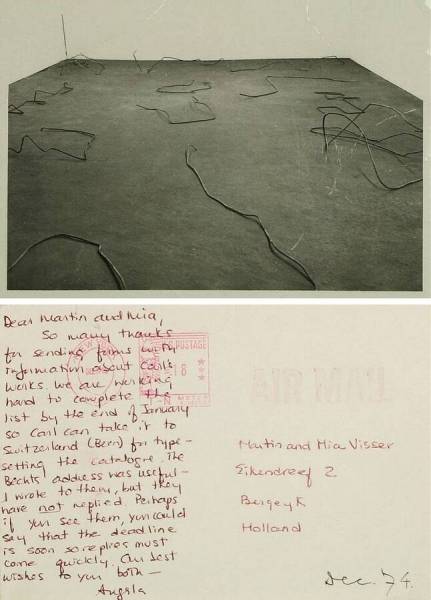 Dear Martin and Mia,
So many thanks
for sending forms with
information about Carl's
works. We are working
hard to complete the
list by the end of January
so Carl can take it to
Switzerland (Bern) for type-
setting the catalogue. The
Bechts address was useful -
I wrote to them, but they
have not replied. Perhaps
if you see them, you could
say that the deadline
is soon so replies must
come quickly. Our best
wishes to you both -
Angela
POSTAGE
18
METER
AIR MAIL
Martin and Mia Visser
Eikendreef 2
Bergeyk
Holland
Dec. 74.